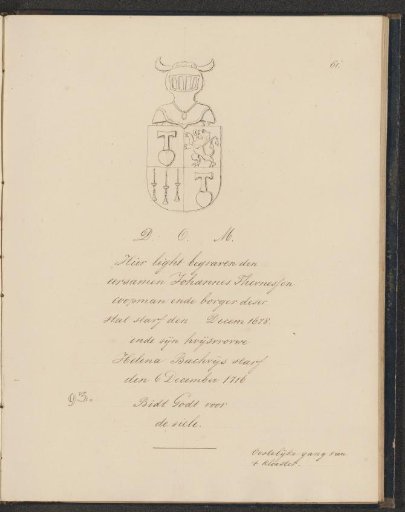 61.
D. O. M.
Hier light begraven den
eersamen Johannes Thenessen
coopman ende borger deser
stat starf den Decem 1678
ende sijn huijsvrorwe
Helena Bachrijs starf
den 6 December 1716
Bidt Godt voor
de siele.
93.
Oostelijke gang van
't klooster.